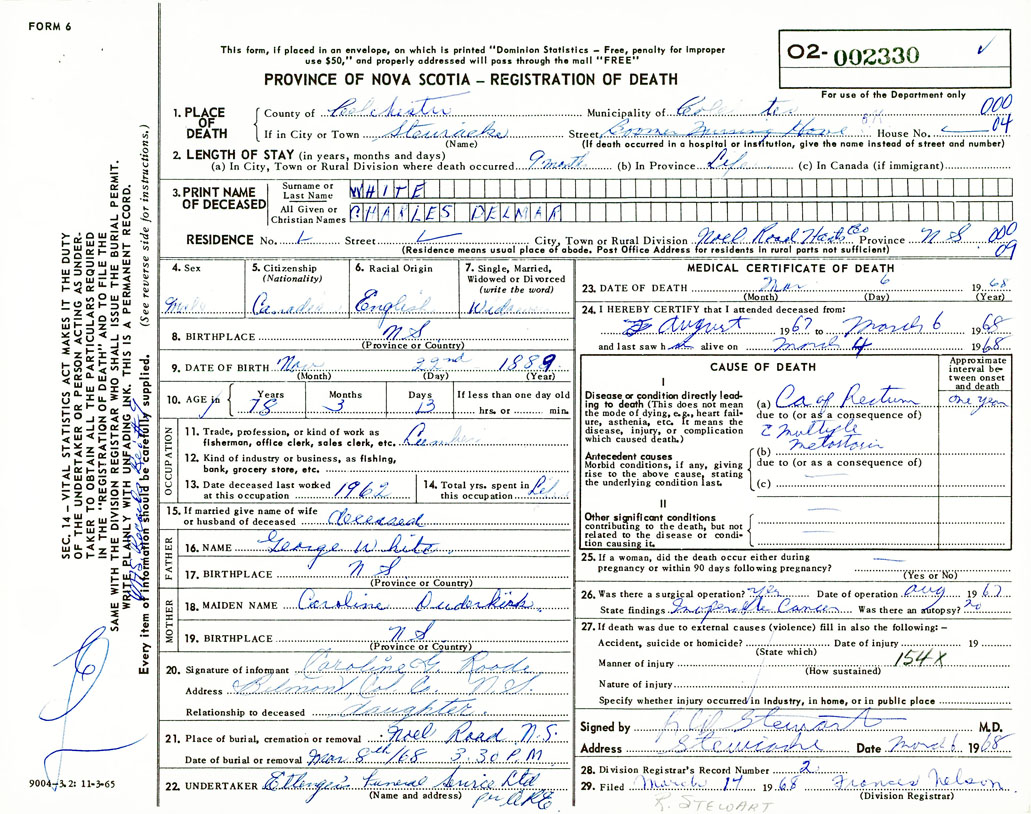 FORM 6
This form, if placed in an envelope, on which is printed "Dominion Statistics – Free, penalty for improper
use $50," and properly addressed will pass through the mail "FREE"
PROVINCE OF NOVA SCOTIA – REGISTRATION OF DEATH
O2- 002330
For use of the Department only
1. PLACE OF DEATH
County of Colchester Municipality of Colchester 000
If in City or Town Stewiacke Street Boomer Nursing Home House No. 04
(Name) (If death occurred in a hospital or institution, give the name instead of street and number)
2. LENGTH OF STAY (in years, months and days)
(a) In City, Town or Rural Division where death occurred 9 month (b) In Province Life (c) In Canada (if immigrant)
3. PRINT NAME OF DECEASED
Surname or Last Name WHITE
All Given or Christian Names CHARLES DELMAR
RESIDENCE No. Street City, Town or Rural Division Noel Road Hants Co Province N S 000
(Residence means usual place of abode. Post Office Address for residents in rural parts not sufficient) 09
4. Sex
Male
5. Citizenship
(Nationality)
Canadian
6. Racial Origin
English
7. Single, Married,
Widowed or Divorced
(write the word)
8. BIRTHPLACE N S
(Province or Country)
9. DATE OF BIRTH Nov 22nd 1889
(Month) (Day) (Year)
10. AGE in
Years Months Days If less than one day old
78 3 13 hrs. or min.
OCCUPATION
11. Trade, profession, or kind of work as
fisherman, office clerk, sales clerk, etc.
12. Kind of industry or business, as fishing,
bank, grocery store, etc.
13. Date deceased last worked
at this occupation 1962
14. Total yrs. spent in
this occupation Life
15. If married give name of wife
or husband of deceased deceased
FATHER
16. NAME George White
17. BIRTHPLACE N S
(Province or Country)
MOTHER
18. MAIDEN NAME Caroline Ouderkirk
19. BIRTHPLACE N S
(Province or Country)
20. Signature of informant Caroline G. Roode
Address Belmont Col. Co. N.S.
Relationship to deceased daughter.
21. Place of burial, cremation or removal Noel Road N.S.
Date of burial or removal Mar 8th /68 3.30 P.M
22. UNDERTAKER Ettinger's Funeral Service Ltd
(Name and address)
MEDICAL CERTIFICATE OF DEATH
23. DATE OF DEATH Mar 6 1968
(Month) (Day) (Year)
24. I HEREBY CERTIFY that I attended deceased from:
August 1967 to March 6 1968
and last saw h alive on March 4 1968
CAUSE OF DEATH
Approximate
interval be-
tween onset
and death
I
Disease or condition directly lead-
ing to death (This does not mean
the mode of dying, e.g., heart fail-
ure, asthenia, etc. It means the
disease, injury, or complication
which caused death.)
(a) Ca of Rectum one year
due to (or as a consequence of)
c̄ multiple
metastasis
Antecedent causes
Morbid conditions, if any, giving
rise to the above cause, stating
the underlying condition last.
(b)
due to (or as a consequence of)
(c)
II
Other significant conditions
contributing to the death, but not
related to the disease or condi-
tion causing it.
25. If a woman, did the death occur either during
pregnancy or within 90 days following pregnancy?
(Yes or No)
26. Was there a surgical operation? yes Date of operation Aug 1967
State findings Inoperable Cancer Was there an autopsy? no
27. If death was due to external causes (violence) fill in also the following: –
Accident, suicide or homicide? Date of injury 19
(State which)
Manner of injury 154X
(How sustained)
Nature of injury
Specify whether injury occurred in industry, in home, or in public place
Signed by Stewart M.D.
Address Stewiacke Date March 6 1968
28. Division Registrar's Record Number 2
29. Filed March 14 1968 Frances Nelson
(Division Registrar)
R. STEWART
SEC. 14 – VITAL STATISTICS ACT MAKES IT THE DUTY
OF THE UNDERTAKER OR PERSON ACTING AS UNDER-
TAKER TO OBTAIN ALL THE PARTICULARS REQUIRED
IN THE "REGISTRATION OF DEATH" AND TO FILE THE
SAME WITH THE DIVISION REGISTRAR WHO SHALL ISSUE THE BURIAL PERMIT.
WRITE PLAINLY WITH UNFADING INK. THIS IS A PERMANENT RECORD.
Every item of information should be carefully supplied. (See reverse side for instructions.)
9004-3.2: 11-3-65